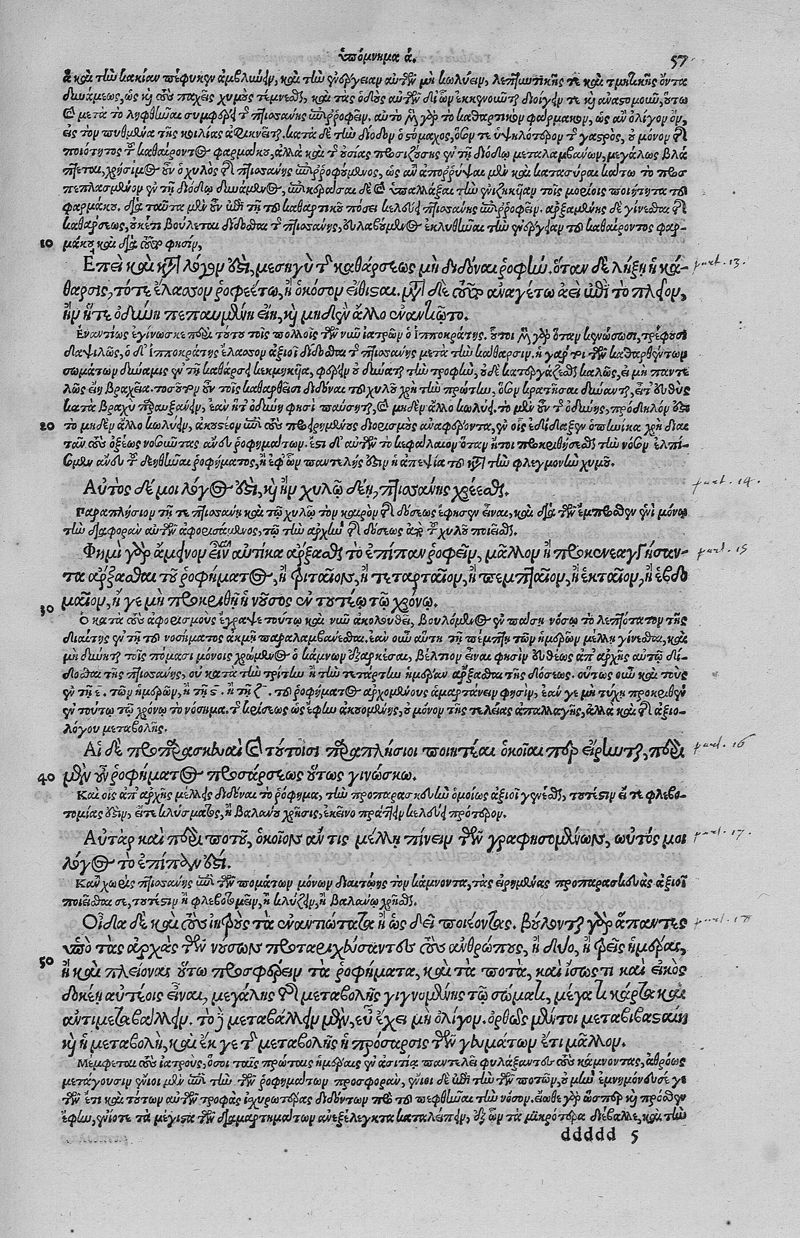 Ὑπόμνημα α. 57
καὶ τὴν κακίαν πέφυκεν ἀμβλύνειν, καὶ τὴν ἐνέργειαν αὐτῶν μὴ κωλύειν, λεπτυντικῆς τε καὶ τμητικῆς ὄντα
δυνάμεως, ὡς καὶ τοὺς παχεῖς χυμοὺς τέμνεσθαι, καὶ τὰς ὁδοὺς αὐτῶν διοίγειν τε καὶ ἀναστομοῦν, οὕτω
καὶ μετὰ τὸ ληφθῆναι συμφέρει τ πτισάνης ἐπιῤῥοφεῖν. αὐτὸ μὲν γὰρ τὸ καθαρτικὸν φάρμακον, ὡς ἂν ὀλίγον ὂν,
εἰς τὸν πυθμένα τῆς κοιλίας ἀφικνεῖται. κατὰ δὲ τὴν δίοδον ὁ στόμαχος, ὅσον τε ὑψηλότερον τ γαστρὸς, ὁ μόνον τῆς
ποιότητος τ καθαίροντος φαρμάκου, ἀλλὰ καὶ τ οὐσίας προσιζούσης ἐν τῇ διόδῳ μεταλαμβάνων, μεγάλως βλά
πτεται, χρήσιμος οὖν ὁ χυλὸς τῆς πτισάνης ἐπιῤῥοφούμενος, ὡς ἂν ἀποῤῥύψαι μὲν καὶ κατασύραι κάτω τὸ προσ
πεπλασμένον ἐν τῇ διόδῳ δυνάμενος, ἐπικεράσαι δὲ καὶ ὑπαλλάξαι τὴν τοῖς μορίοις ποιότητα τοῦ
φαρμάκου. διὰ ταῦτα μὲν οὖν ἐπὶ τῇ τοῦ καθαρτικοῦ πόσει κελεύει πτισάνης ἐπιῤῥοφεῖν. ἀρξαμένης δὲ γίνεσθαι τῆς
καθάρσεως, οὐκέτι βούλεται δίδοσθαι τ πτισάνης, εὐλαβούμενος ἐκλυθῆναι τὴν ἐνέργειαν τοῦ καθαίροντος φαρ-
10 μάκου, καὶ διὰ τοῦτό φησιν,
Ἐπεὶ καὶ κατὰ λόγον ἐστὶ, μεσηγὺ τ καθάρσεως μὴ διδόναι ῥοφεῖν. ὅταν δὲ λήξῃ ἡ κά- part. 13.
θαρσις, τότε ἔλασσον ῥοφείτω, ἢ ὁκόσον εἴθισται. μετὰ δὲ τοῦτο ἀναγέτω ἀεὶ ἐπὶ τὸ πλεῖον,
ἢν ἥ τε ὀδύνη πεπαυμένη εἴη, καὶ μηδὲν ἄλλο ἐναντιῶτο.
Ἐναντίως ἐγίνωσκε περὶ τούτου τοῖς πολλοῖς τῶν νῦν ἰατρῶν ὁ Ἱπποκράτης. οὗτοι μὲν γὰρ ὅταν κενώσωσι, τρέφουσι
δαψιλῶς, ὁ δ' Ἱπποκράτης ἔλασσον ἀξιοῖ δίδοσθαι τ πτισάνης μετὰ τὴν κάθαρσιν. ἡ γάρ τοι τῶν καθαρθέντων
σωμάτων δύναμις ἐν τῇ καθάρσει κεκμηκυῖα, φέρειν οὐ δύναται τὴν τροφὴν, οὐδὲ κατεργάζεσθαι καλῶς, εἰ μὴ παντε
λῶς εἴη βραχεῖα. τοσοῦτον οὖν τοῖς καθαρθεῖσι διδόναι τοῦ χυλοῦ χρὴ τὴν πρώτην, ὅσου κρατῆσαι δύναται, εἶτ' εὐθὺς
κατὰ βραχὺ παραυξάνειν, ἐὰν ἥ τ' ὀδύνη φησὶ παύσηται, καὶ μηδὲν ἄλλο κωλύῃ. τὸ μὲν οὖν τ ὀδύνης, πρόδηλόν ἐστι
20 τὸ μηδὲν ἄλλο κωλύειν, ἀκουστέον ἐπὶ τοὺς προειρημένους διορισμοὺς ἀναφέροντα, ἐν οἷς ἐδίδαξεν ὁπηνίκα χρὴ διαι
τᾶν τοὺς ὀξέως νοσοῦντας ἄνευ ῥοφημάτων. ἔστι δ' αὐτῶν τὸ κεφάλαιον ὅταν ἤτοι προκριθήσεσθαι τὴν νόσον ἐλπί-
ζωμεν ἄνευ τ δεηθῆναι ῥοφήματος, ἢ ἐφ' ὧν παντελής ἐστιν ἡ ἀπεψία τοῦ κατὰ τὴν φλεγμονὴν χυμοῦ.
Αὐτὸς δέ μοι λόγος ἐστὶ, καὶ ἢν χυλῷ δέῃ πτισάνης χρέεσθαι. part. 14.
Παραπλήσιον τῇ τε πτισάνῃ καὶ τῷ χυλῷ τὸν καιρὸν τῆς δόσεως ἔφησεν εἶναι, καὶ διὰ τῶν ἔμπροσθεν ἑνὶ μόνῳ
τὴν διαφορὰν αὐτῶν ἀφορισάμενος, τῷ τὴν ἀρχὴν τῆς δόσεως ἀπὸ τ χυλοῦ ποιεῖσθαι.
Φημὶ γὰρ ἄμεινον εἶναι αὐτίκα ἄρξασθαι τὸ ἐπίπαν ῥοφεῖν, μᾶλλον ἢ προκενεαγγήσαν- part. 15
τα ἄρξασθαι τοῦ ῥοφήματος, ἢ τριταῖον, ἢ τεταρταῖον, ἢ πεμπταῖον, ἢ ἑκταῖον, ἢ ἑβδο
30 μαῖον, ἤν γε μὴ προκριθῇ ἡ νοῦσος ἐν τουτέῳ τῷ χρόνῳ.
Ὃ κατὰ τοὺς ἀφορισμοὺς ἔγραψε τούτῳ καὶ νῦν ἀκολουθεῖ, βουλόμενος ἐν πάσῃ νόσῳ τὸ λεπτότατον τῆς
διαίτης ἐν τῇ τοῦ νοσήματος ἀκμῇ παραλαμβάνεσθαι. ἐὰν οὖν αὕτη τῇ πέμπτῃ τῶν ἡμερῶν μέλλῃ γίνεσθαι, καὶ
μὴ δύνηται τοῖς πόμασι μόνοις χρώμενος ὁ κάμνων ἐξαρκέσαι, βέλτιον εἶναί φησιν εὐθέως ἀπ' ἀρχῆς αὐτῷ δί-
δοσθαι τῆς πτισάνης, οὐ κατὰ τὴν τρίτην ἢ τὴν τετάρτην ἡμέραν ἄρξασθαι τῆς δόσεως. οὕτως οὖν καὶ τοὺς
ἐν τῇ ε. τῶν ἡμερῶν, ἢ τῇ ϛ. ἢ τῇ ζ. τοῦ ῥοφήματος ἀρχομένους ἁμαρτάνειν φησὶν, ἐάν γε μὴ τύχῃ προκριθὲν
ἐν τούτῳ τῷ χρόνῳ τὸ νόσημα. τ κρίσεως ὡς ἔφην ἀκουομένης, οὐ μόνον τῆς τελείας ἀπαλλαγῆς, ἀλλὰ καὶ τῆς ἀξιο-
λόγου μεταβολῆς.
Αἱ δὲ προπαρασκευαὶ καὶ τούτοισι παραπλήσιοι ποιητέαι ὁκοῖαι περ εἴρηνται, περὶ part. 16
40 μὲν οὖν ῥοφήματος προσάρσεως οὕτως γινώσκω.
Καὶ οἷς ἀπ' ἀρχῆς μέλλεις διδόναι τὸ ῥόφημα, τὴν προπαρασκευὴν ὁμοίως ἀξιοῖ γενέσθαι, τουτέστιν εἴ τε φλεβο-
τομίας ἐστὶν, εἴ τε κλύσματος, ἢ βαλάνου χρῆσις, ἐκεῖνο πράττειν κελεύει πρότερον.
Αὐτὰρ καὶ περὶ ποτοῦ, ὁκοῖον ἄν τις μέλλῃ πίνειν τῶν γραφησομένων, ωὑτός μοι part. 17.
λόγος τὸ ἐπίπαν ἐστί.
Κἂν χωρὶς πτισάνης ἐπὶ τῶν πομάτων μόνων διαιτώης τὸν κάμνοντα, τὰς εἰρημένας προπαρασκευὰς ἀξιοῖ
ποιεῖσθαί σε, τουτέστιν ἢ φλεβοτομεῖν, ἢ κλύζειν, ἢ βαλάνῳ χρῆσθαι.
Οἶδα δὲ καὶ τοὺς ἰητροὺς τὰ ἐναντιώτατα ἢ ὡς δεῖ ποιέοντας. βούλονται γὰρ ἅπαντες part. 18
ὑπὸ τὰς ἀρχὰς τῶν νούσων προταριχεύσαντες τοὺς ἀνθρώπους, ἢ δύο, ἢ τρεῖς ἡμέρας,
50 ἢ καὶ πλείονας οὕτω προσφέρειν τὰ ῥοφήματα, καὶ τὰ ποτὰ, καὶ ἴσως τι καὶ εἰκὸς
δοκέει αὐτέοις εἶναι, μεγάλης τῆς μεταβολῆς γιγνομένης τῷ σώματι, μέγα τι κάρτα καὶ
ἀντιμεταβάλλειν. τὸ δὲ μεταβάλλειν μὲν, εὖ ἔχει μὴ ὀλίγον. ὀρθῶς μέντοι μεταβιβαστέη
καὶ ἡ μεταβολὴ, καὶ ἔκ γε τ μεταβολῆς ἡ πρόσαρσις τῶν γευμάτων ἔτι μᾶλλον.
Μέμφεται τοὺς ἰατροὺς, ὅσοι τὰς πρώτας ἡμέρας ἐν ἀσιτίᾳ παντελεῖ φυλάξαντες τοὺς κάμνοντας, ἀθρόως
μετάγουσιν ἔνιοι μὲν ἐπὶ τὴν τῶν ῥοφημάτων προσφορὰν, ἔνιοι δὲ ἐπὶ τὴν τῶν ποτῶν, οὐ μὴν ἐμνημόνευσέ γε
τῶν ἔτι καὶ τούτων αὐτῶν τροφὰς ἰσχυροτέρας διδόντων πρὸ τοῦ πεφθῆναι τὴν νόσον. εἴωθε γὰρ ὥσπερ καὶ πρόσθεν
ἔφην, ἐνίοτε τὰ μέγιστα τῶν διαμαρτημάτων ἀνεξέλεγκτα καταλείπειν, ἐξ ὧν τὰ μικρότερα διέβαλλε, καὶ τὴν
ddddd 5